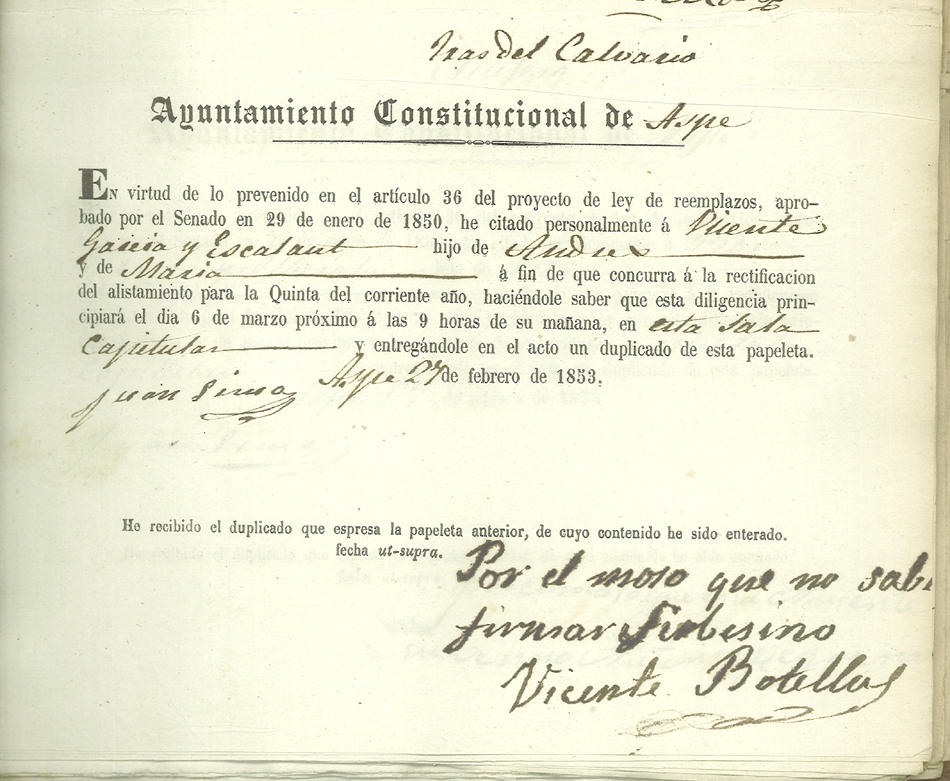 Tras del Calvario
Ayuntamiento Constitucional de Aspe
EN virtud de lo prevenido en el artículo 36 del proyecto de ley de reemplazos, apro-
bado por el Senado en 29 de enero de 1850, he citado personalmente á Vicente
Garcia y Escalant hijo de Andres
y de Maria á fin de que concurra á la rectificacion
del alistamiento para la Quinta del corriente año, haciéndole saber que esta diligencia prin-
cipiará el dia 6 de marzo próximo á las 9 horas de su mañana, en esta Sala
Capitular y entregándole en el acto un duplicado de esta papeleta.
Aspe 27 de febrero de 1853.
Juan
He recibido el duplicado que espresa la papeleta anterior, de cuyo contenido he sido enterado.
fecha ut-supra.
Por el moso que no sabe
firmar
Vicente Botella